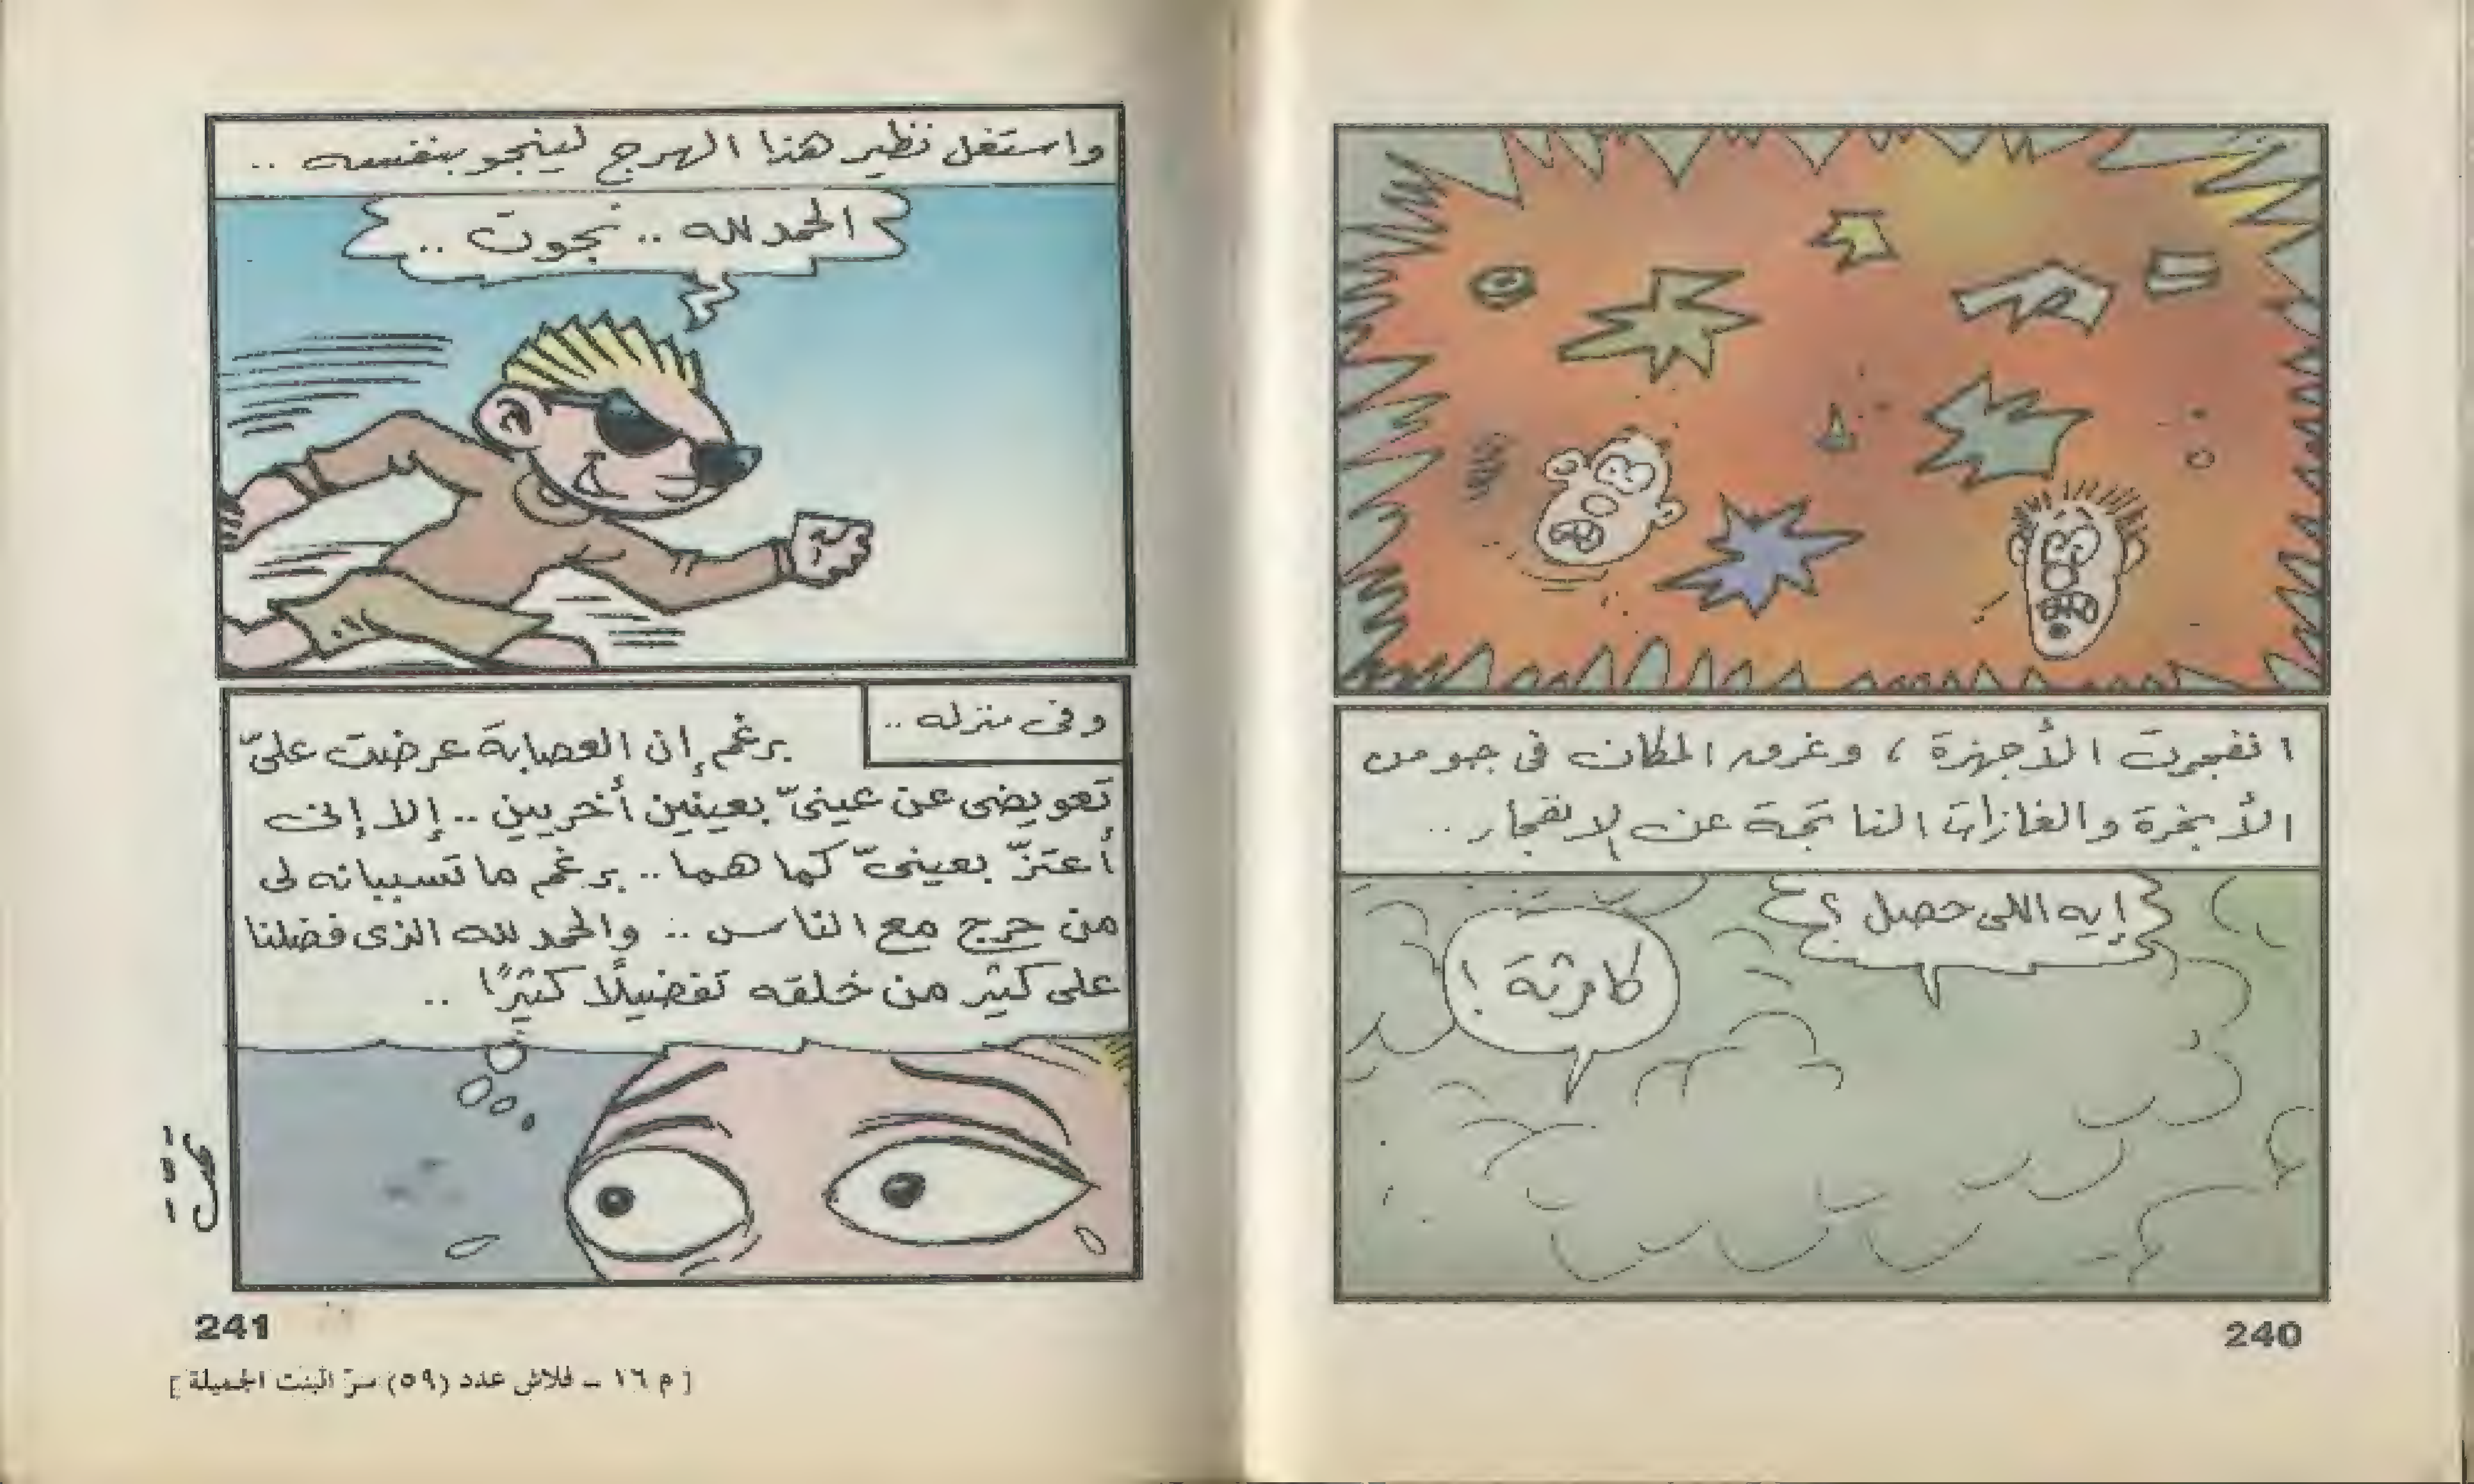 انفجرت الأجهزة ، وغرق المكان فى جو من
الأبخرة والغازات الناتجة عن الانفجار ..
إيه اللى حصل ؟
كارثة !
240
واستغل نظير هذا الهرج لينجو بنفسه ..
الحمد لله .. نجوت ..
وفى منزله ..
برغم إن العصابة عرضت علىّ
تعويضى عن عينىّ بعينين أخريين .. إلا إنى
أعتزّ بعينىّ كما هما .. برغم ما تسببانه لى
من حرج مع الناس .. والحمد لله الذى فضلنا
على كثير من خلقه تفضيلًا كثيرًا ..
تمت
241
[ م ١٦ – فلاش عدد (٥٩) سرّ البنت الجميلة ]